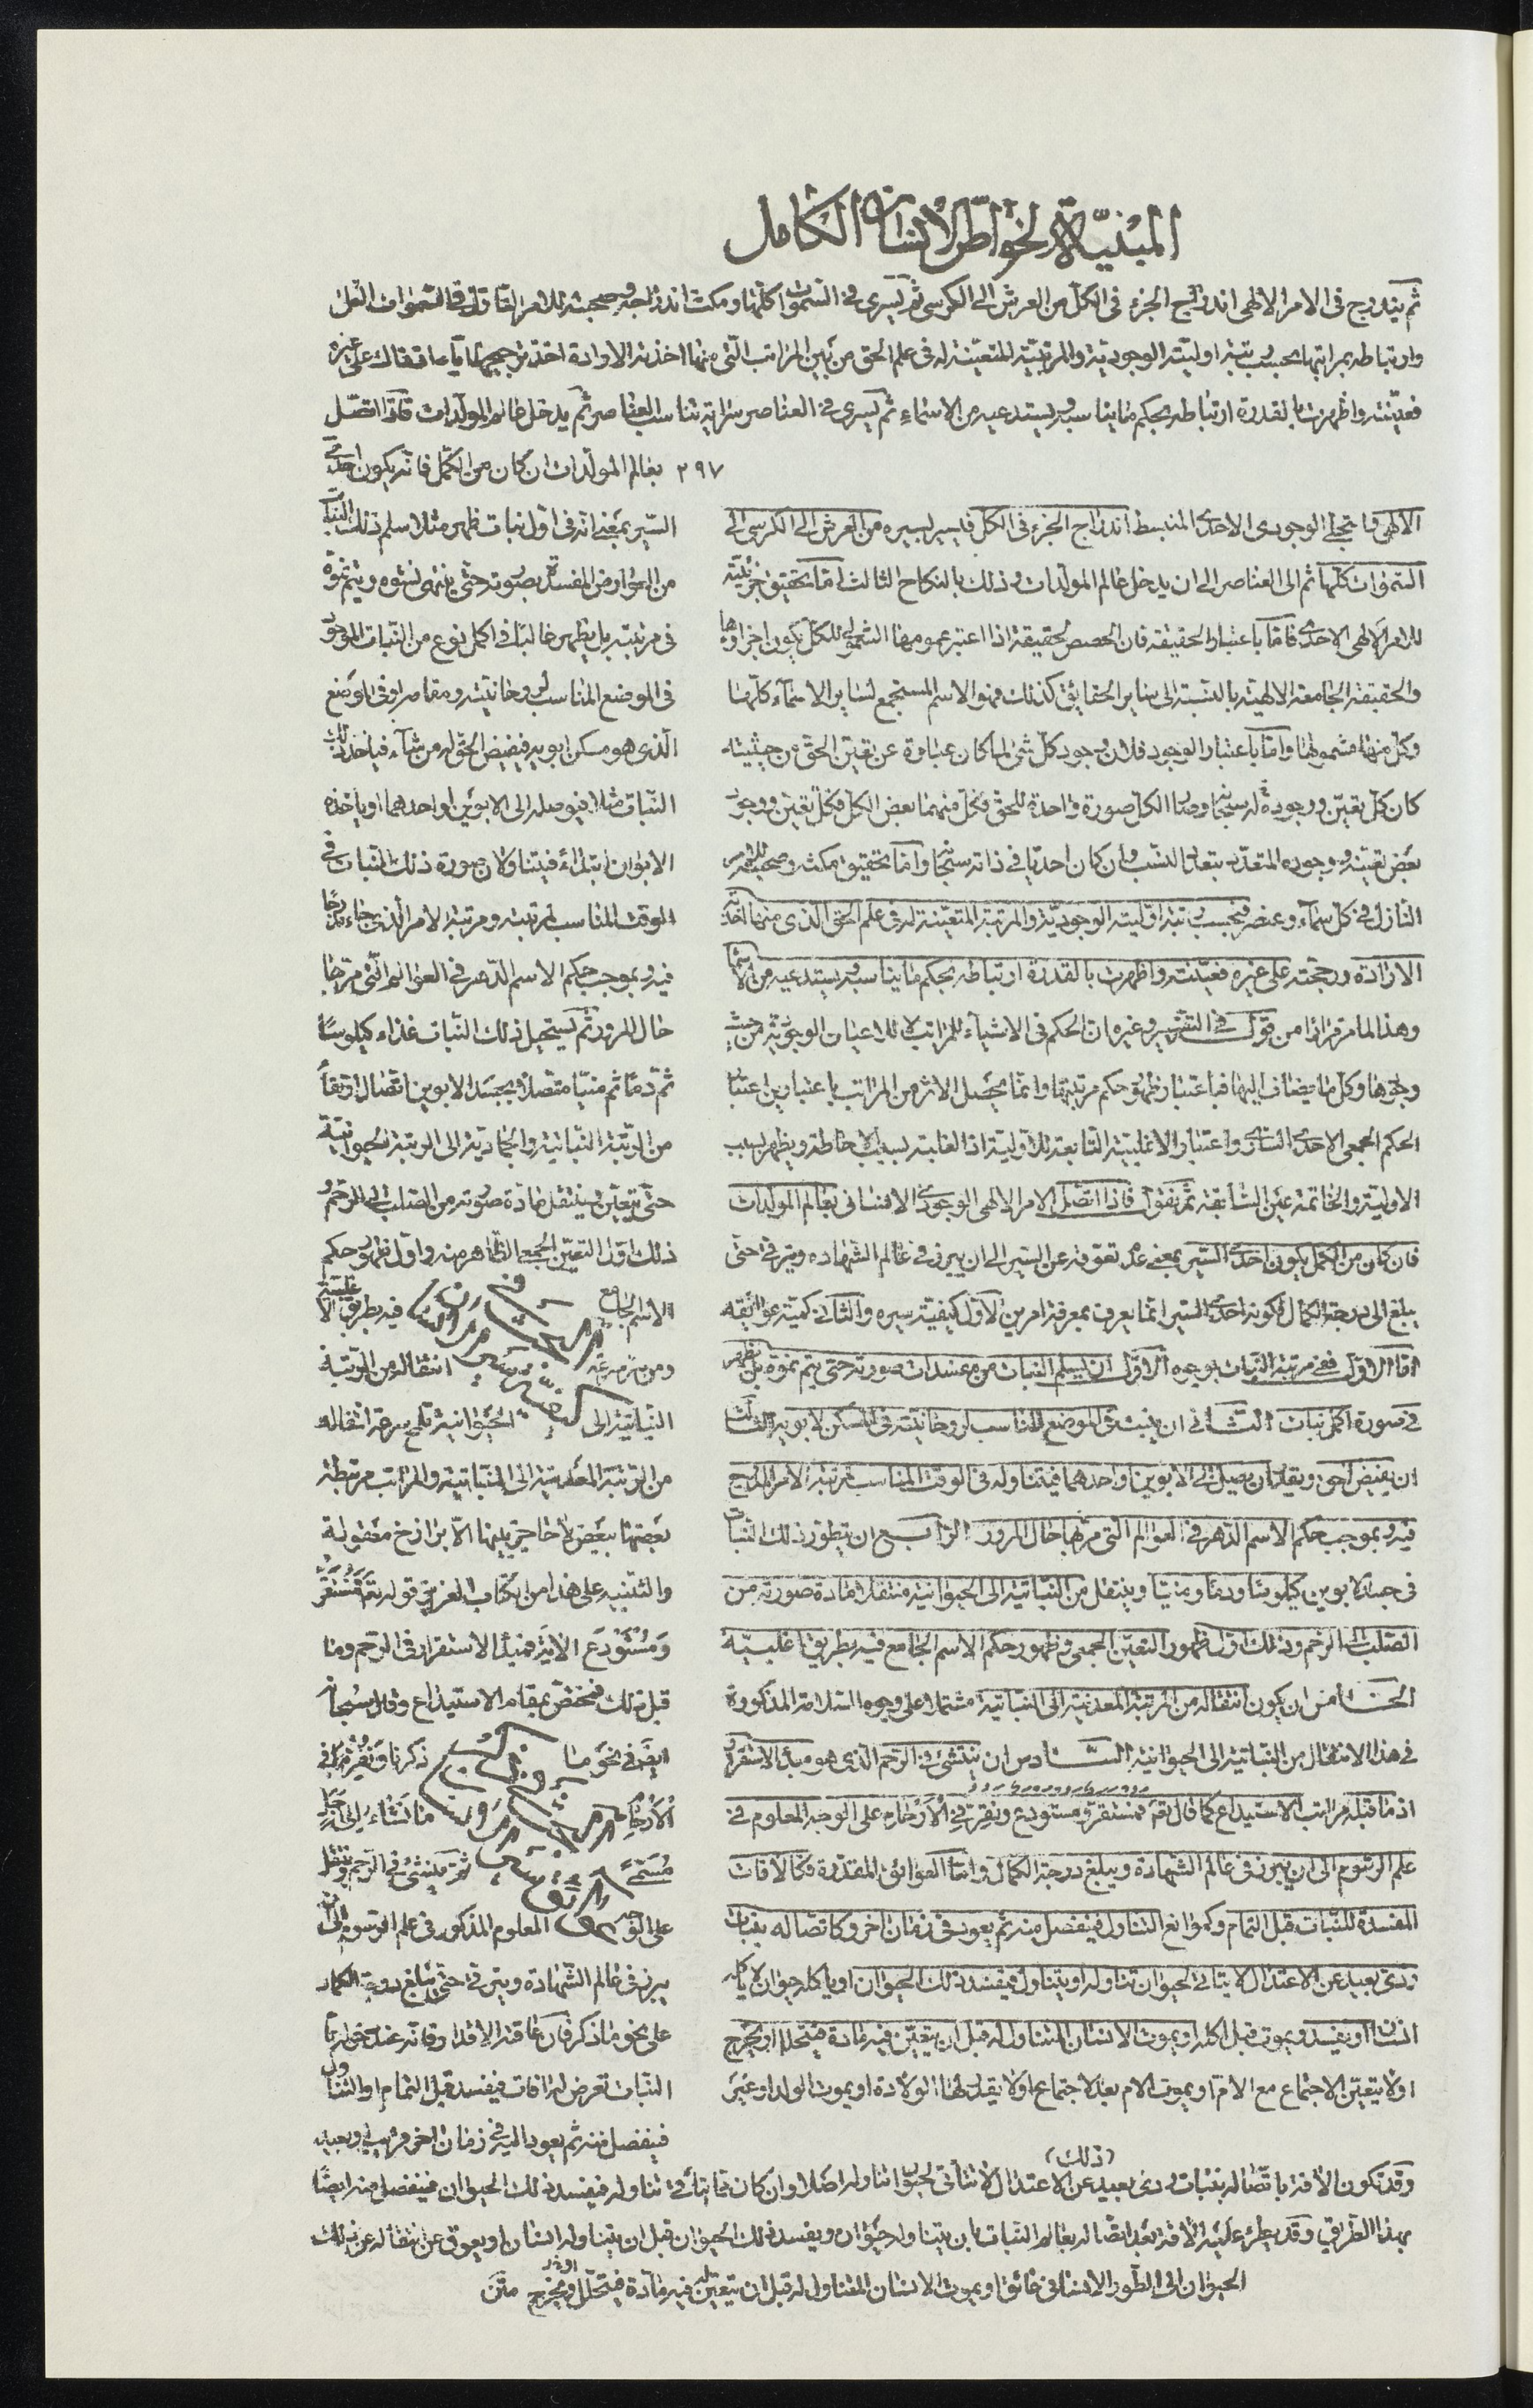 المبنية لخواطر الانسان الكامل
ثم يندرج فى الامر الالهى اندراج الجزء فى الكل من العرش الى الكرسى ثم يسرى فى السموات كلها ومكث اندراجه وصحبته للامر النازل فى السموات العلى
وارتباطه بمراتبها بحسب رتبة اوليته الوجودية والمرتبية المتعينة له فى علم الحق من بين المراتب التى منها اخذته الارادة على غيره
فعينته واظهرت بالقدرة ارتباطه بحكم ما يناسبه ويستدعيه من الاسماء ثم يسرى فى العناصر سراية تناسب العناصر ثم يدخل عالم المولدات فاذا اتصل
٢٩٧ بعالم المولدات ان كان من الكمل فانه يكون احدى
الالهى والتجلى الوجودى الاحدى المنبسط اندراج الجزء فى الكل فيسير بسيره من العرش الى الكرسى الى
السموات كلها ثم الى العناصر الى ان يدخل عالم المولدات وذلك بالنكاح الثالث اما تحقيق جزئيته
للامر الالهى الاحدى فاما باعتبار الحقيقة فان الحصص لحقيقة اذا اعتبر عمومها الشمولى للكل يكون اجزاؤها
والحقيقة الجامعة الالهية بالنسبة الى ساير الحقايق كذلك فهو الاسم المستجمع لساير الاسماء كلها
وكل منها مشمولها واما باعتبار الوجود فلان وجود كل شئ لما كان عبارة عن تعين الحق من حيثيته
كان كل تعين ووجوده له سبحانه وصار الكل صورة واحدة للحق فكل منهما بعض الكل فكل تعين ووجود
بعض تعينه ووجوده المتعدد بتعدد النسب وان كان احديا فى ذاته سبحانه واما تحقيق مكثه وصحبته للامر
النازل فى كل سماء وعنصر فبحسب رتبة اوليته الوجودية والمرتبة المتعينة له فى علم الحق الذى منها اخذته
الارادة ورجحته على غيره فعينته واظهرت بالقدرة ارتباطه بحكم ما يناسبه ويستدعيه من الاسماء
وهذا لما مر مرارا من قوله فى التفسير وغيره ان الحكم فى الاشياء للمراتب لا للاعيان الوجودية من حيث
وجودها وكل ما يضاف اليها فباعتبار ظهور حكم مرتبتها وانما يحصل الاثر من المراتب باعتبارين اعتبار
الحكم الجمعى الاحدى السارى واعتبار الاغلبية التابعة للاولية اذ الغلبة بسبب الاحاطة ويظهر بسبب
الاولية والخاتمة عين السابقة ثم نقول فاذا اتصل الامر الالهى الوجودى الانسانى بعالم المولدات
فان كان من الكمل يكون احدى السير بمعنى عدم تعوقه عن السير الى ان يبرز فى عالم الشهادة ويترقى حتى
يبلغ الى درجة الكمال فكونه احدى السير انما يعرف بمعرفة امرين الاول كيفية سيره والثانى كمية عوائقه
اما الاول ففى مرتبة النبات بوجوه الاول ان يسلم النبات من مفسدات صورته حتى يتم نموه بل يظهر
فى صورة اكمل نبات الثانى ان ينبت فى الموضع المناسب لروحانيته فى المسكن لابويه الثالث
ان يقيض الحق ويقدر ان يصل الى الابوين او احدهما فيتناوله فى الوقت المناسب لمرتبة الامر المدرج
فيه وبموجب حكم الاسم الدهر فى العوالم التى مر بها حال المرور الرابع ان يتطور ذلك النبات
فى جسد الابوين كيلوسا ودما ومنيا وينتقل من النباتية الى الحيوانية منتقلا مادة صورته من
الصلب الى الرحم وذلك اول ظهور التعين الجمعى وظهور حكم الاسم الجامع فيه بطريق اغلبية
الخامس ان يكون انتقاله من المرتبة المعدنية الى النباتية مشتملا على وجوه السلامة المذكورة
فى هذا الانتقال من النباتية الى الحيوانية السادس ان ينتشى فى الرحم الذى هو مبدأ الاستقرار
اذ ما قبله مراتب الاستيداع كما قال تعم فمستقر ومستودع ونقر فى الارحام على الوجه المعلوم فى
علم الرسوم الى ان يبرز فى عالم الشهادة ويبلغ درجة الكمال واما العوائق المقدرة فكالآفات
المفسدة للنبات قبل التمام وكموانع التناول فينفصل منه ثم يعود فى زمان اخر وكاتصاله بنبات
ردى بعيد عن الاعتدال لا يتاتى لحيوان تناوله او يتناول فيفسد ذلك الحيوان او ياكله حيوان لا ياكله
انسان او يفسد ويموت قبل اكله او يموت الانسان المتناول له قبل ان يتعين فيه مادة فيتحلل او يخرج
او لا يتعين الاجتماع مع الام او يموت الام بعد الاجتماع او لا يقدر لها الولادة او يموت الولد او غير
السير بمعنى انه فى اول نبات ظهر مثلا سلم ذلك النبات
من العوارض المفسدة لصورته حتى ينتهى نشوه ويتم نموه
فى مرتبته بل يظهر غالبا فى اكمل نوع من النبات الموجود
فى الموضع المناسب لروحانيته ومقامه او فى الموضع
الذى هو مسكن ابويه فيقيض الحق له من شاء فياخذ ذلك
النبات مثلا فيوصله الى الابوين او احدهما او ياخذه
الابوان ابتداء فيتناولان صورة ذلك النبات فى
الوقت المناسب لمرتبته ومرتبة الامر الذى جاء مدرجا
فيه وبموجب حكم الاسم الدهر فى العوالم التى مر بها
حال المرور ثم يستحيل ذلك النبات غذاء كيلوسا
ثم دما ثم منيا متصلا بجسد الابوين اتصال ارتقاء
من الرتبة النباتية والجمادية الى الرتبة الحيوانية
حتى يتعين وينتقل مادة صورته من الصلب الى الرحم و
ذلك اول التعين الجمعى الظاهر منه واول ظهور حكم
الاسم الجامع فيه بطريق الاغلبية
ومن ثم سرعة انتقاله من الرتبة
النباتية الى الحيوانية تلمح سرعة انتقاله
من الرتبة المعدنية الى النباتية والمراتب مرتبطة
بعضها ببعض لا حاجز بينها الا برازخ معقولة
والتنبيه على هذا من الكتاب العزيز قوله تعم فَمُسْتَقَرٌّ
وَمُسْتَوْدَعٌ الاية فمبدأ الاستقرار فى الرحم وما
قبل ذلك فمختص بمقام الاستيداع وقال سبحانه
ايضا فى نحو ما ذكرنا وَنُقِرُّ فِى
الْأَرْحَامِ مَا نَشَاءُ إِلَى أَجَلٍ
مُسَمًّى ثم ينتشئ فى الرحم وينتقل
على الوجه المعلوم المذكور فى علم الرسوم الى ان
يبرز فى عالم الشهادة ويترقى حتى يبلغ درجة الكمال
على نحو ما ذكر فان عاقته الاقدار فانه عند دخوله
النبات تعرض له افات فيفسد قبل التمام او التناول
فينفصل منه ثم يعود اليه فى زمان اخر قريب او بعيد
(ذلك)
وقد تكون الآفة باتصاله بنبات ردى بعيد عن الاعتدال لا يتأتى لحيوان تناوله اصلا وان كان مما يتأتى تناوله فيفسد ذلك الحيوان فينفصل منه ايضا
بهذا الطريق وقد يطرء عليه الافة بعد اتصاله بعالم النبات بان يتناوله حيوان ويفسد ذلك الحيوان قبل ان يتناوله انسان او يعوق عن انتقاله عن ذلك
الحيوان الى الطور الانسانى عائق او يموت الانسان المتناول له قبل ان يتعين فيه مادة فيتحلل او يخرج متن